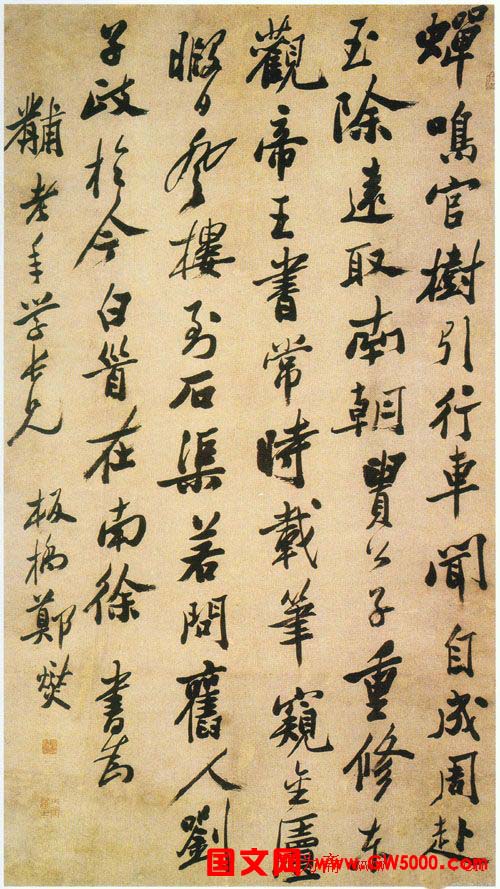 蟬鳴官樹引行車聞自成周赴
玉除遠取南朝貴公子重修东
觀帝王書常時載筆窺金匱
暇日登樓到石渠若問舊人劉
子政於今白首在南徐 書為
黼老年學長兄 板橋鄭燮
国文网 www.GW5000.com